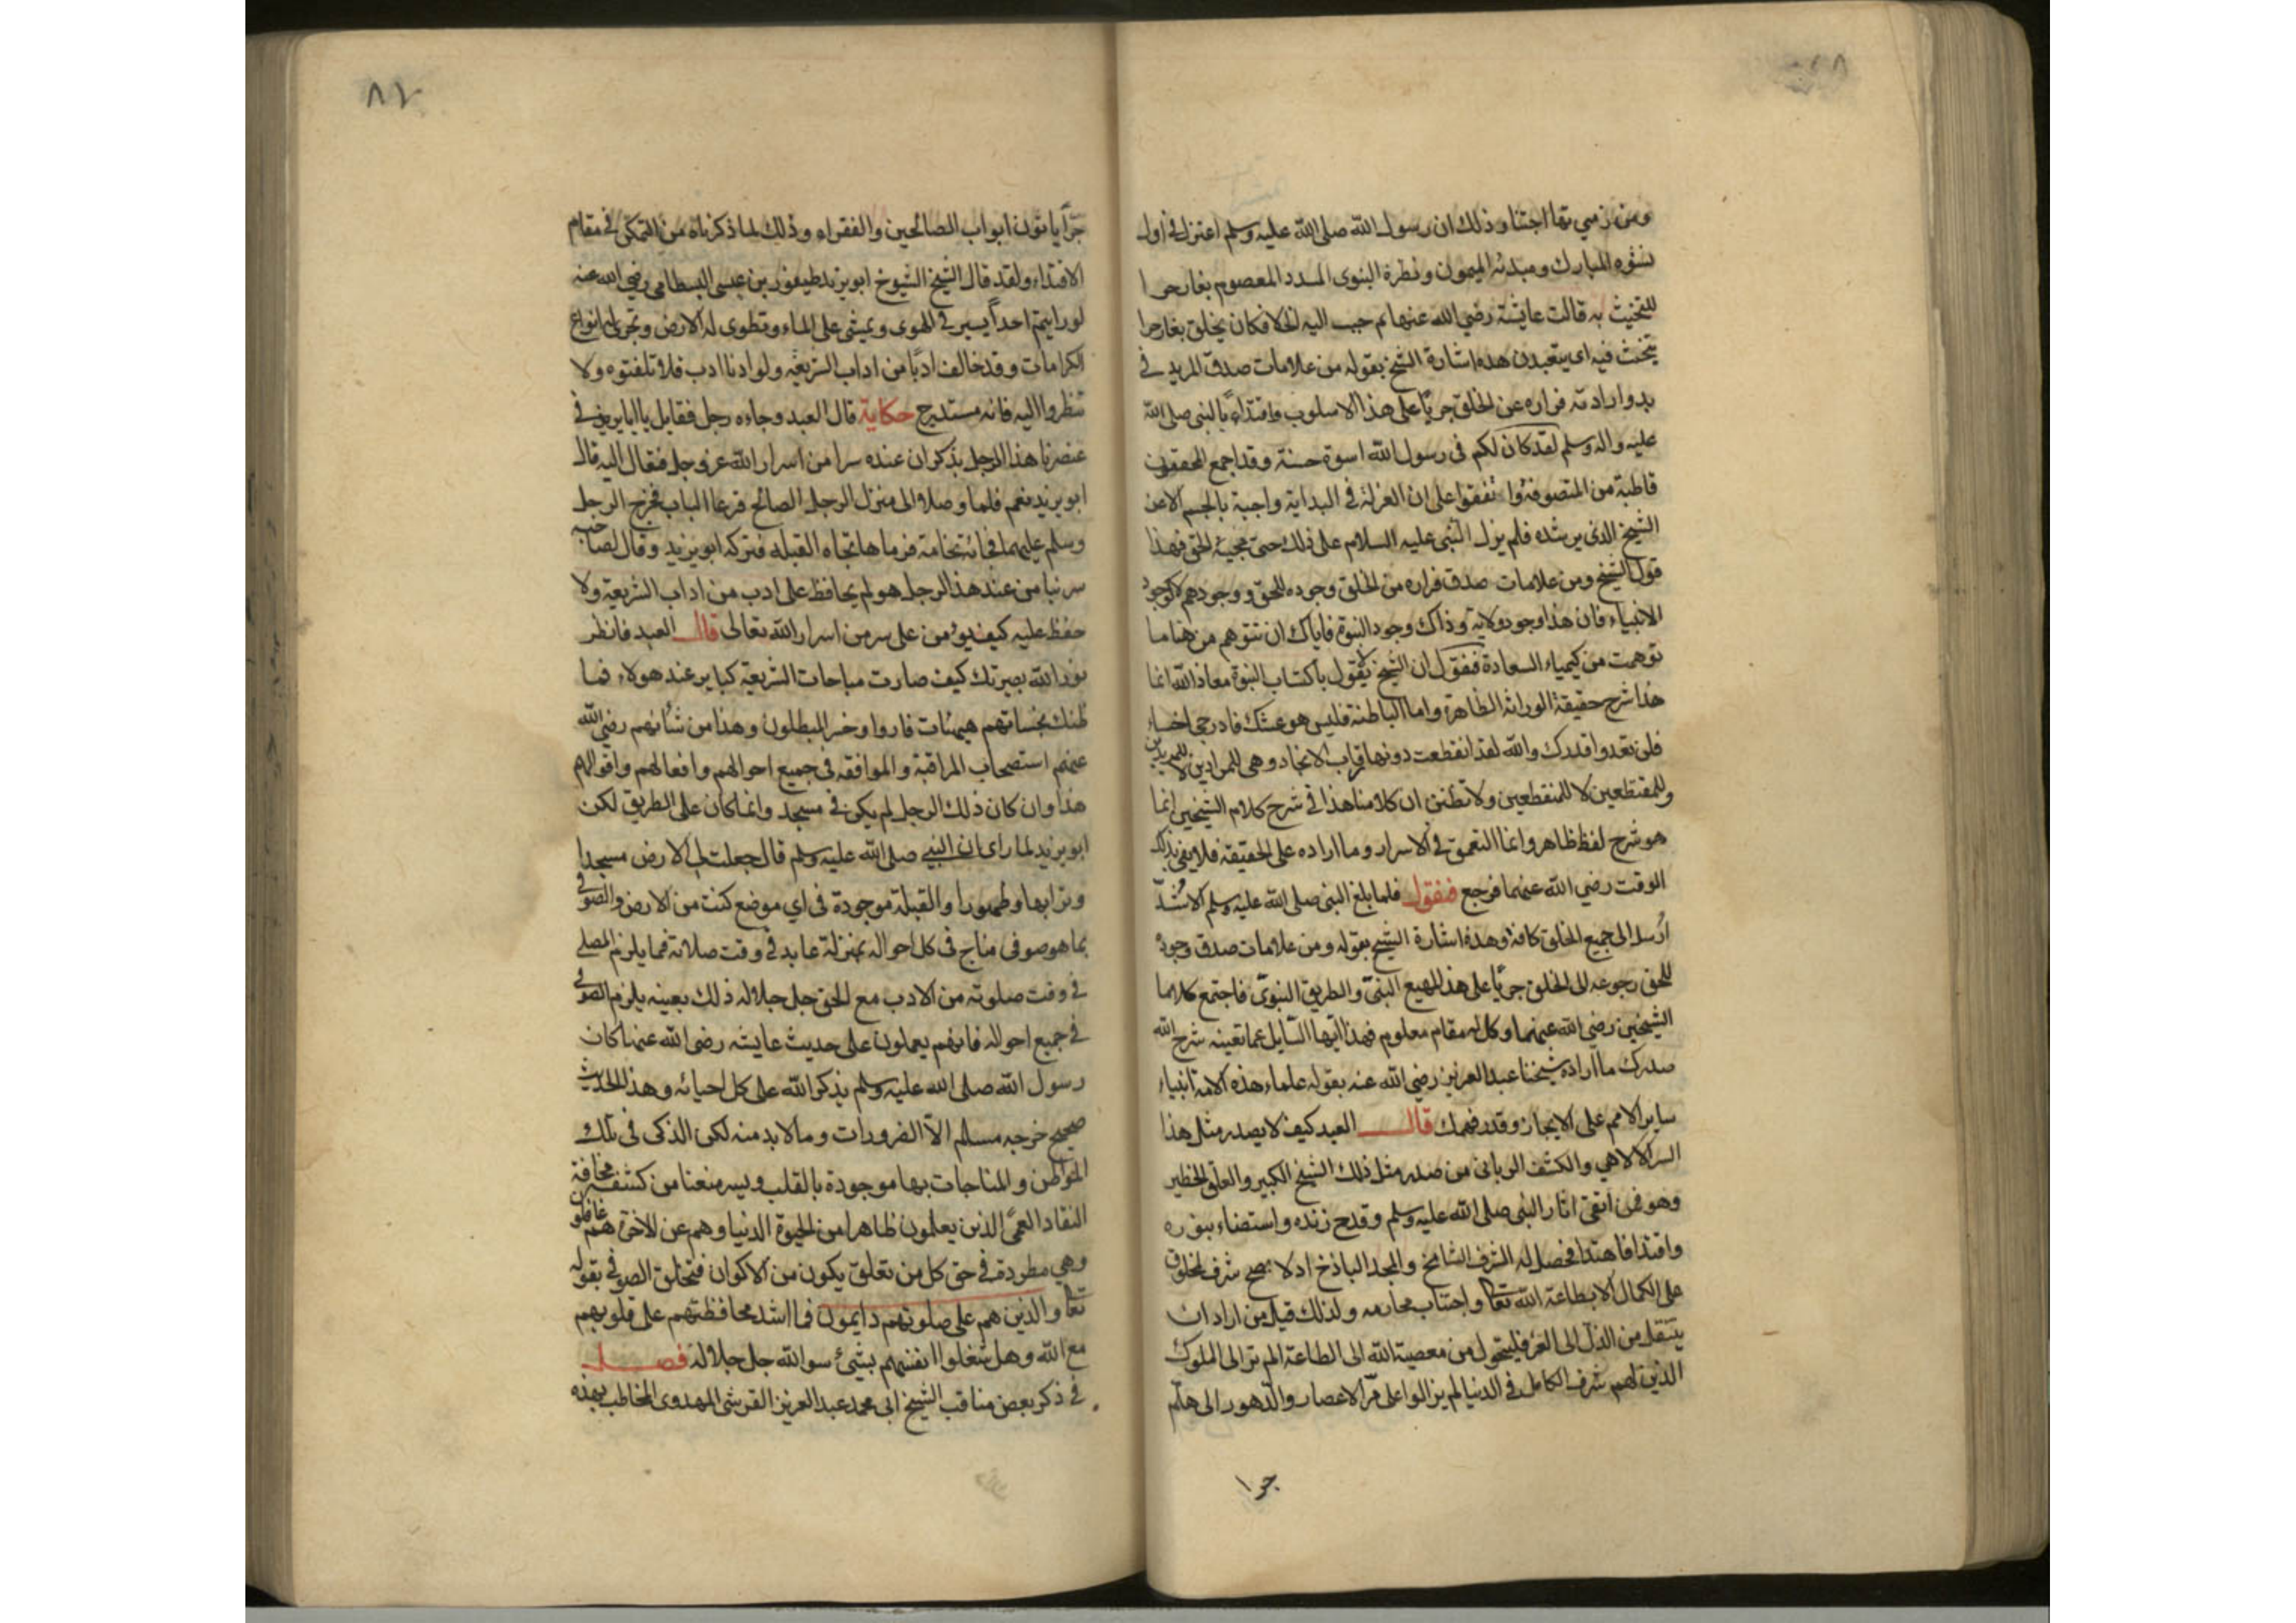 ومن زمي تها اجتنا وذلك ان رسول الله صلى الله عليه وسلم اعتزل في اول
نشوه المبارك ومبدئه الميمون ونظره النبوى المسدد المعصوم بغار حرا
للتحنث به قالت عايشة رضي الله عنها ثم حبب اليه الخلا فكان يخلق بغار حرا
يتحنث فيه اى يتعبد ن هذه اشارة الشيخ بقوله من علامات صدق المريد في
بدو ارادته فراره عن الخلق جريًا على هذا الاسلوب واقتداءً بالنبى صلى الله
عليه واله وسلم لقد كان لكم فى رسول الله اسوة حسنة وقد اجمع المحققون
قاطبة من المتصوفة واتفقوا على ان العزلة في البداية واجبة بالجسم الا عن
الشيخ الذى يرشده فلم يزل النبى عليه السلام على ذلك حتى مجيئه الحق فهذا
قول الشيخ ومن علامات صدق فراره من الخلق وجوده للحق ووجودهم لا كوجود
الانبياء فان هذا وجود ولاية وذاك وجود النبوة فاياك ان تتوهم من هنا ما
توهمت من كيمياء السعادة فنقول ان الشيخ لا يقول باكتساب النبوة معاذ الله انما
هذا شرح حقيقة الوراثة الظاهرة واما الباطنة فليس هو عشك فادرجى اخساء
فلن تعدوا قدرك والله لقد انقطعت دونها رقاب الانجاد وهى للمرادين لا للمريدين
وللمقتطعين لا للمنقطعين ولا تظنن ان كلامنا هذا في شرح كلام الشيخين انما
هو شرح لفظ ظاهر واما التعمق في الاسرار وما اراده على الحقيقة فلا يفى بذلك
الوقت رضي الله عنهما فرجع فنقول فلما بلغ النبى صلى الله عليه وسلم الاشدّ
اُرسل الى جميع الخلق كافة وهذه اشارة الشيخ بقوله ومن علامات صدق وجوده
للحق رجوعه الى الخلق جريًا على هذا المهيع البنىّ والطريق النبوىّ فاجتمع كلاما
الشيخين رضي الله عنهما وكل له مقام معلوم فهذا ايها السايل عما تعينه شرح الله
صدرك ما اراده شيخنا عبد العزيز رضي الله عنه بقوله علماء هذه الامة انبياء
ساير الامم على الايجاز وقدر فهمك قال العبد كيف لا يصدر مثل هذا
السر الالاهي والكشف الربانى من صدر مثل ذلك الشيخ الكبير والعلق الخطير
وهو فمن اتقى اثار النبى صلى الله عليه وسلم وقدح زنده واستضاء بنوره
واقتدا فاهتدا فحصل له الشرف الشامخ والمجد الباذخ اذ لا يصح شرف المخلوق
على الكمال الا بطاعة الله تعا واجتناب محارمه ولذلك قيل من اراد ان
ينتقل من الذل الى العز فليتحول من معصية الله الى الطاعة الم تر الى الملوك
الذين لهم شرف الكامل في الدنيا لم يزالوا على مرّ الاعصار والدهور الى هلم
جرا
٨٧
جرّاً ياتون ابواب الصالحين والفقراء وذلك لما ذكرناه من التمكن في مقام
الاقتداء ولقد قال الشيخ الشيوخ ابو يزيد طيفور بن عيسى البسطامى رضي الله عنه
لو رايتم احداً يسير في الهوى ويمشى على الماء وتطوى له الارض وتجرى له انواع
الكرامات وقد خالف ادبًا من اداب الشريعة ولو ادنا ادب فلا تلتفتوه ولا
تنظروا اليه فانه مستدرج حكاية قال العبد وجاءه رجل فقا بل يا ابا يزيد في
عنصرنا هذا الرجل يذكر ان عنده سرا من اسرار الله عز وجل فتعال اليه قال
ابو يزيد نعم فلما وصلا الى منزل الرجل الصالح قرعا الباب فخرج الرجل
وسلم عليهما فجائته نخامة فرماها تجاه القبله فتركه ابو يزيد وقال لصاحبه
سر بنا من عند هذا الرجل هو لم يحافظ على ادب من اداب الشريعة ولا
حفظ عليه كيف يؤمن على سر من اسرار الله تعالى قال العبد فانظر
نور الله بصيرتك كيف صارت مباحات الشريعة كباير عند هولاء فما
ظنك بحسناتهم هيهات فازوا وخسر المبطلون وهذا من شانهم رضي الله
عنهم استصحاب المراقبة والموافقة في جميع احوالهم وافعالهم واقوالهم
هذا وان كان ذلك الرجل لم يكن في مسجد وانما كان على الطريق لكن
ابو يزيد لما راى ان النبى صلى الله عليه وسلم قال جعلت لى الارض مسجدا
وترابها وطهورا والقبلة موجودة فى اي موضع كنت من الارض والصوفى
بما هو صوفى مناج فى كل احواله بمنزلة عابد في وقت صلاته فما يلزم المصلى
في وقت صلوته من الادب مع الحق جل جلاله ذلك بعينه يلزم الصوفى
في جميع احواله فانهم يعملون على حديث عايشه رضي الله عنها كان
رسول الله صلى الله عليه وسلم يذكر الله على كل احيائه وهذا الحديث
صحيح خرجه مسلم الا الضرورات وما لا بد منه لكن الذكر فى تلك
المواطن والمناجات بها موجودة بالقلب ويسر منعنا من كشفه مخافة
النقاد العمىّ الذين يعلمون ظاهرا من الحيوة الدنيا وهم عن الاخرة هم غافلون
وهي مطردة في حق كل من تعلق بكون من الاكوان فتخلق الصوفى بقوله
تعا والذين هم على صلوتهم دايمون فما اشد محافظتهم على قلوبهم
مع الله وهل شغلوا انفسهم بشئ سوا الله جل جلاله فصل
في ذكر بعض مناقب الشيخ ابى محمد عبد العزيز القرشى المهدوى المخاطب بهذه